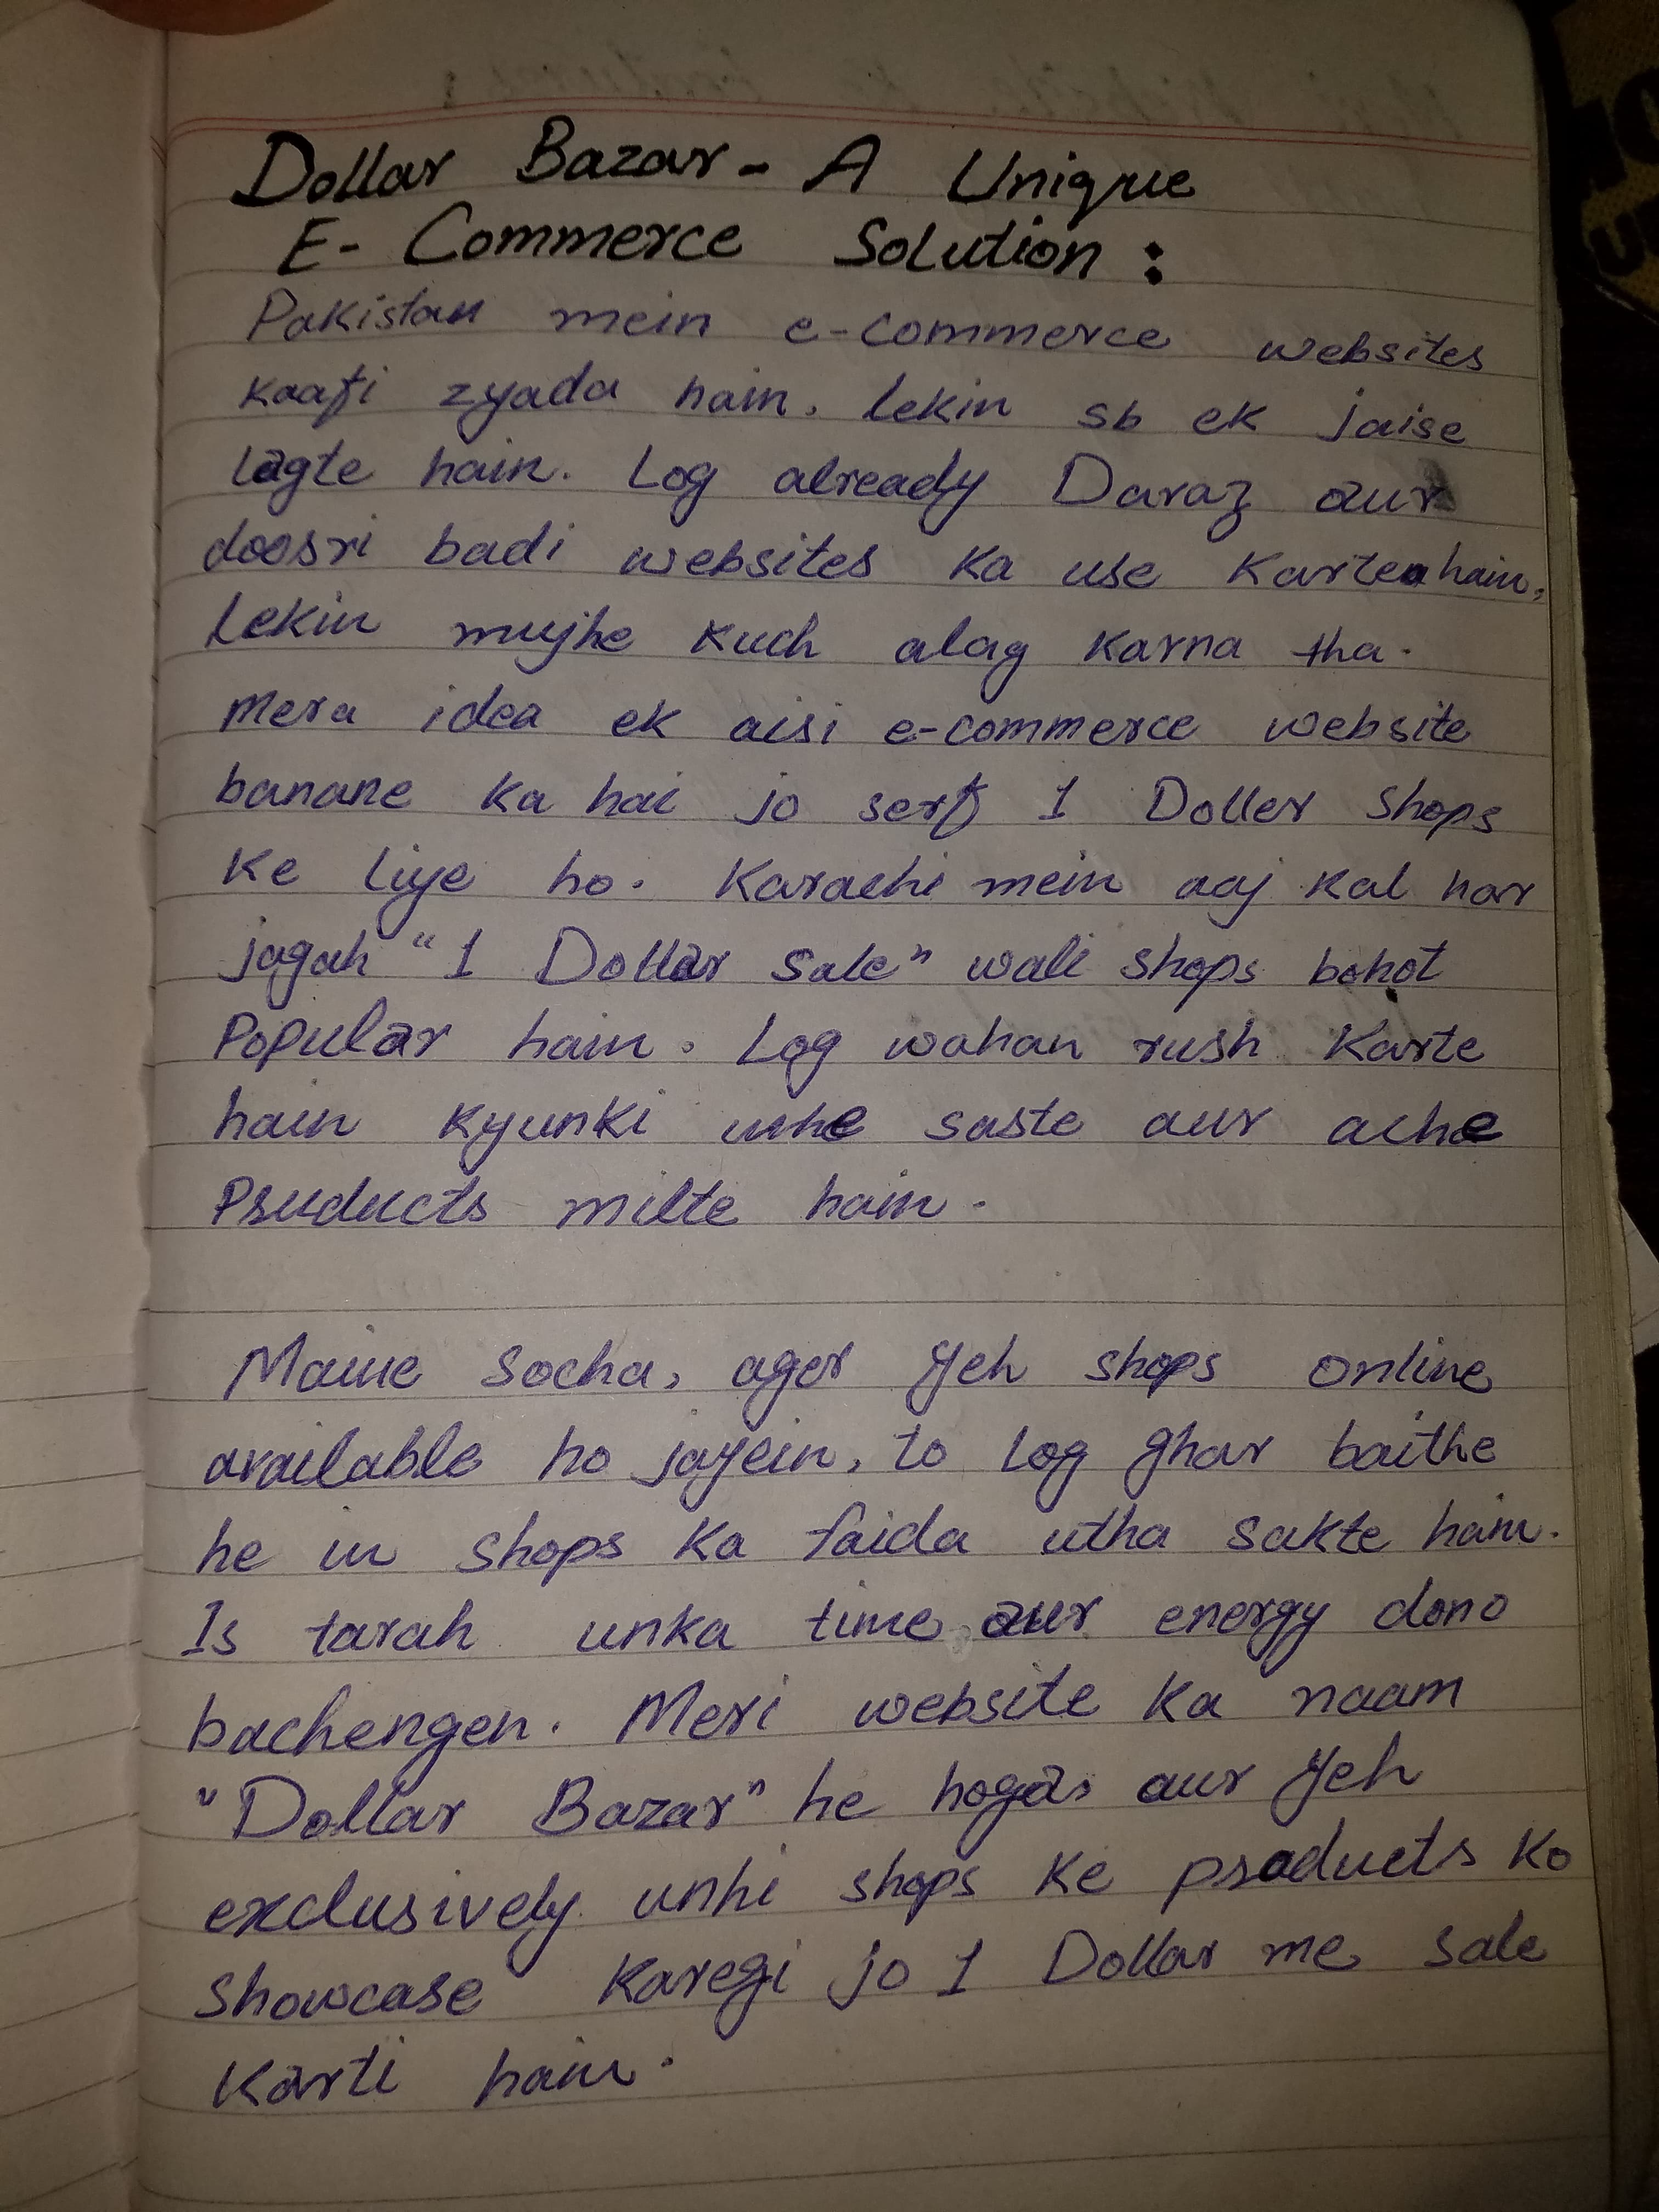 Dollar Bazar - A Unique
E- Commerce Solution :
Pakistan mein e-commerce websites
kaafi zyada hain. Lekin sb ek jaise
lagte hain. Log already Daraz aur
doosri badi websites ka use karte hain,
Lekin mujhe kuch alag karna tha.
Mera idea ek aisi e-commerce website
banane ka hai jo serf 1 Doller shops
ke liye ho. Karachi mein aaj kal har
jagah "1 Dollar Sale" wali shops bohot
Popular hain. Log wahan rush karte
hain kyunki unhe saste aur ache
Products milte hain.
Maine socha, ager yeh shops online
available ho jayein, to log ghar baithe
he in shops ka faida utha sakte hain.
Is tarah unka time aur energy dono
bachengen. Meri website ka naam
"Dollar Bazar" he hoga, aur yeh
exclusively unhi shops ke products ko
showcase karegi jo 1 Dollar me sale
karti hain.